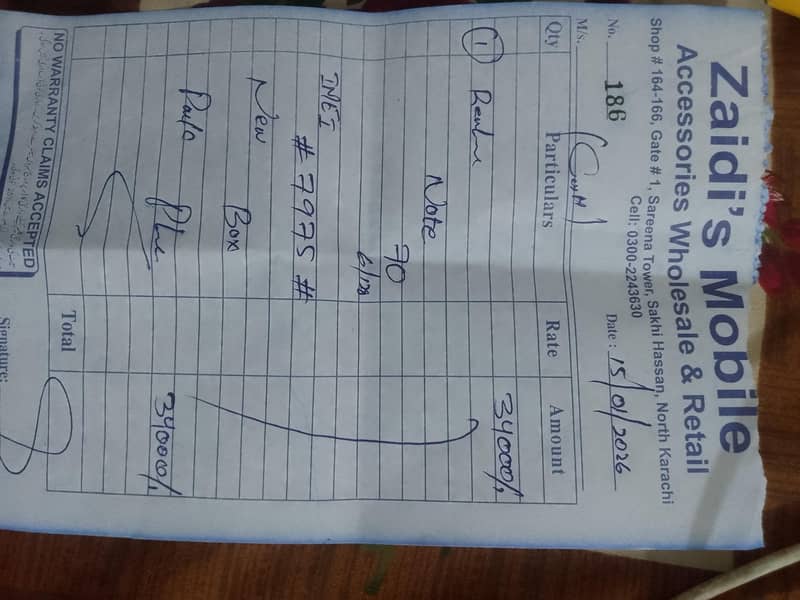 Zaidi's Mobile
Accessories Wholesale & Retail
Shop # 164-166, Gate # 1, Sareena Tower, Sakhi Hassan, North Karachi
Cell: 0300-2243630
No. 186 Date: 15/01/2026
M/s. (Cash)
Qty Particulars Rate Amount
1 34000/-
Note
70
6/128
IMEI
# 7975 #
New
Box
34000/-
Total
NO WARRANTY CLAIMS ACCEPTED
Signature: